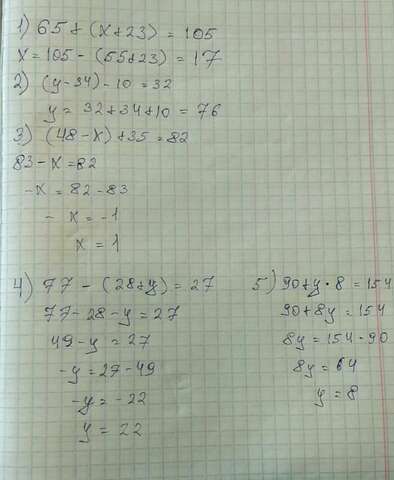 1) 65 + (x + 23) = 105
x = 105 - (65 + 23) = 17
2) (y - 34) - 10 = 32
y = 32 + 34 + 10 = 76
3) (48 - x) + 35 = 82
83 - x = 82
-x = 82 - 83
- x = -1
x = 1
4) 77 - (28 + y) = 27
77 - 28 - y = 27
49 - y = 27
-y = 27 - 49
-y = -22
y = 22
5) 90 + y · 8 = 154
90 + 8y = 154
8y = 154 - 90
8y = 64
y = 8